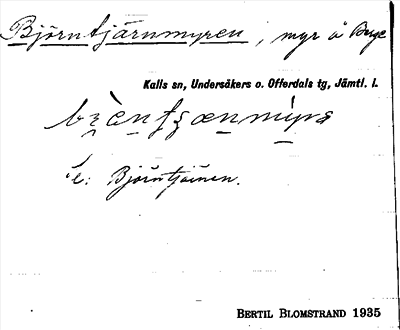 Björntjärnmyren, myr å Bryc
Kalls sn, Undersåkers o. Offerdals tg, Jämtl. l.
f: Björntjärnen.
BERTIL BLOMSTRAND 1935